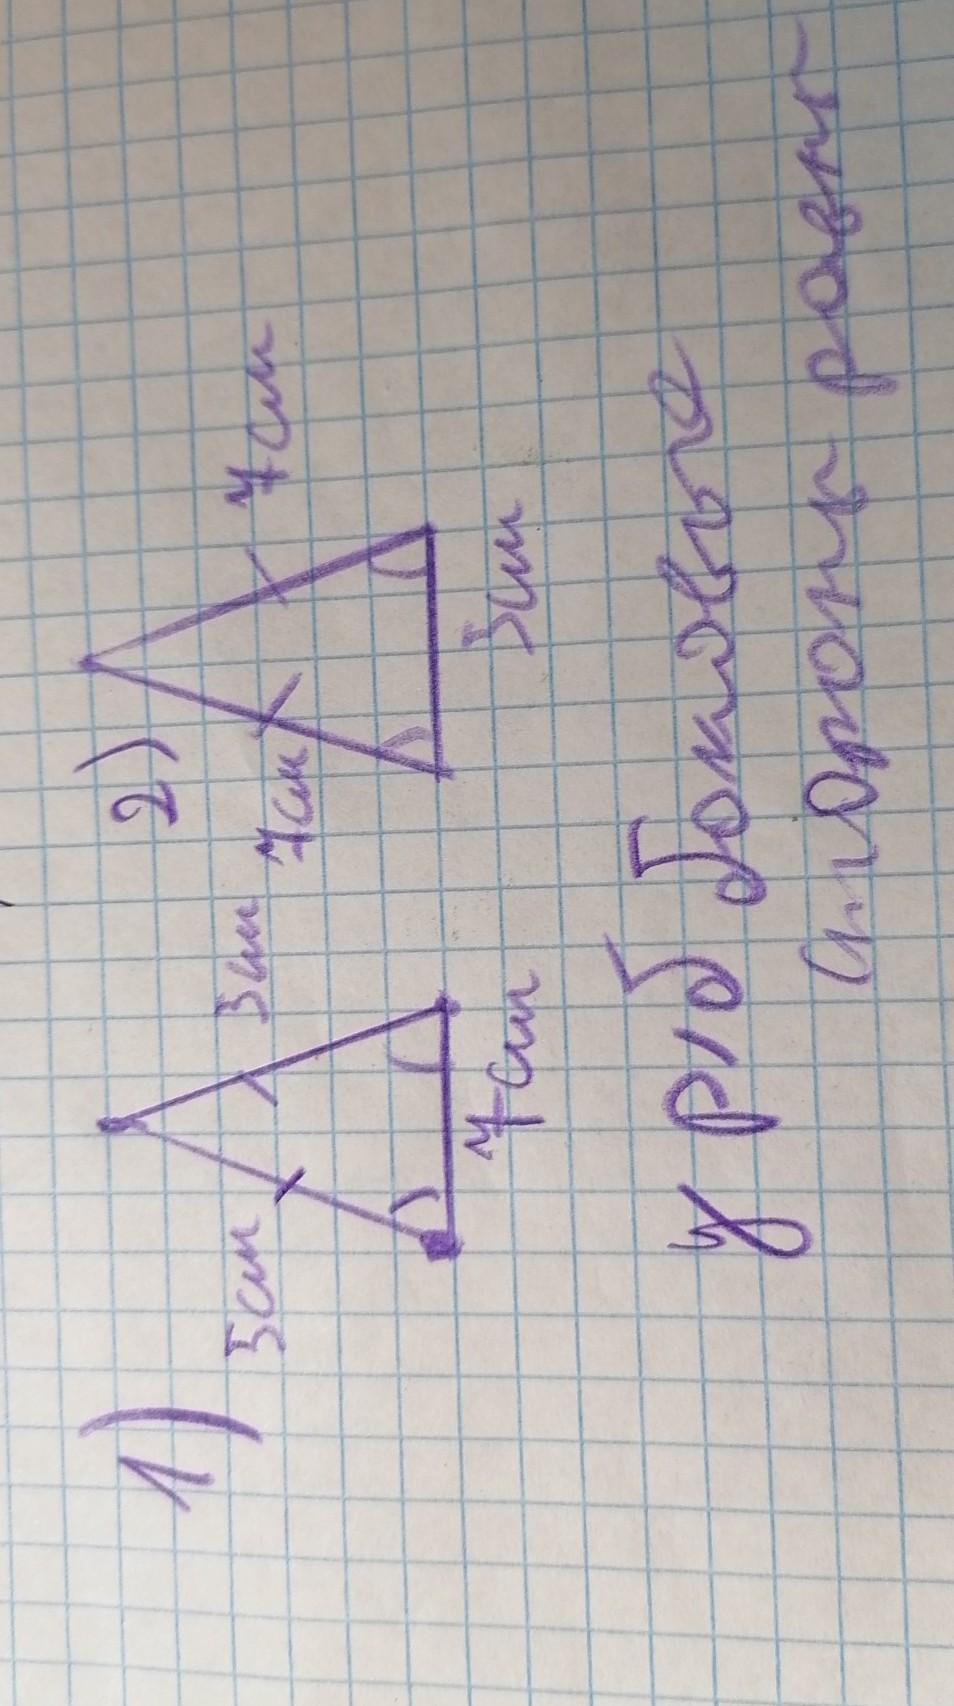 1) 3см 3см
7см
2) 7см 7см
3см
У р/б боковые
стороны равны